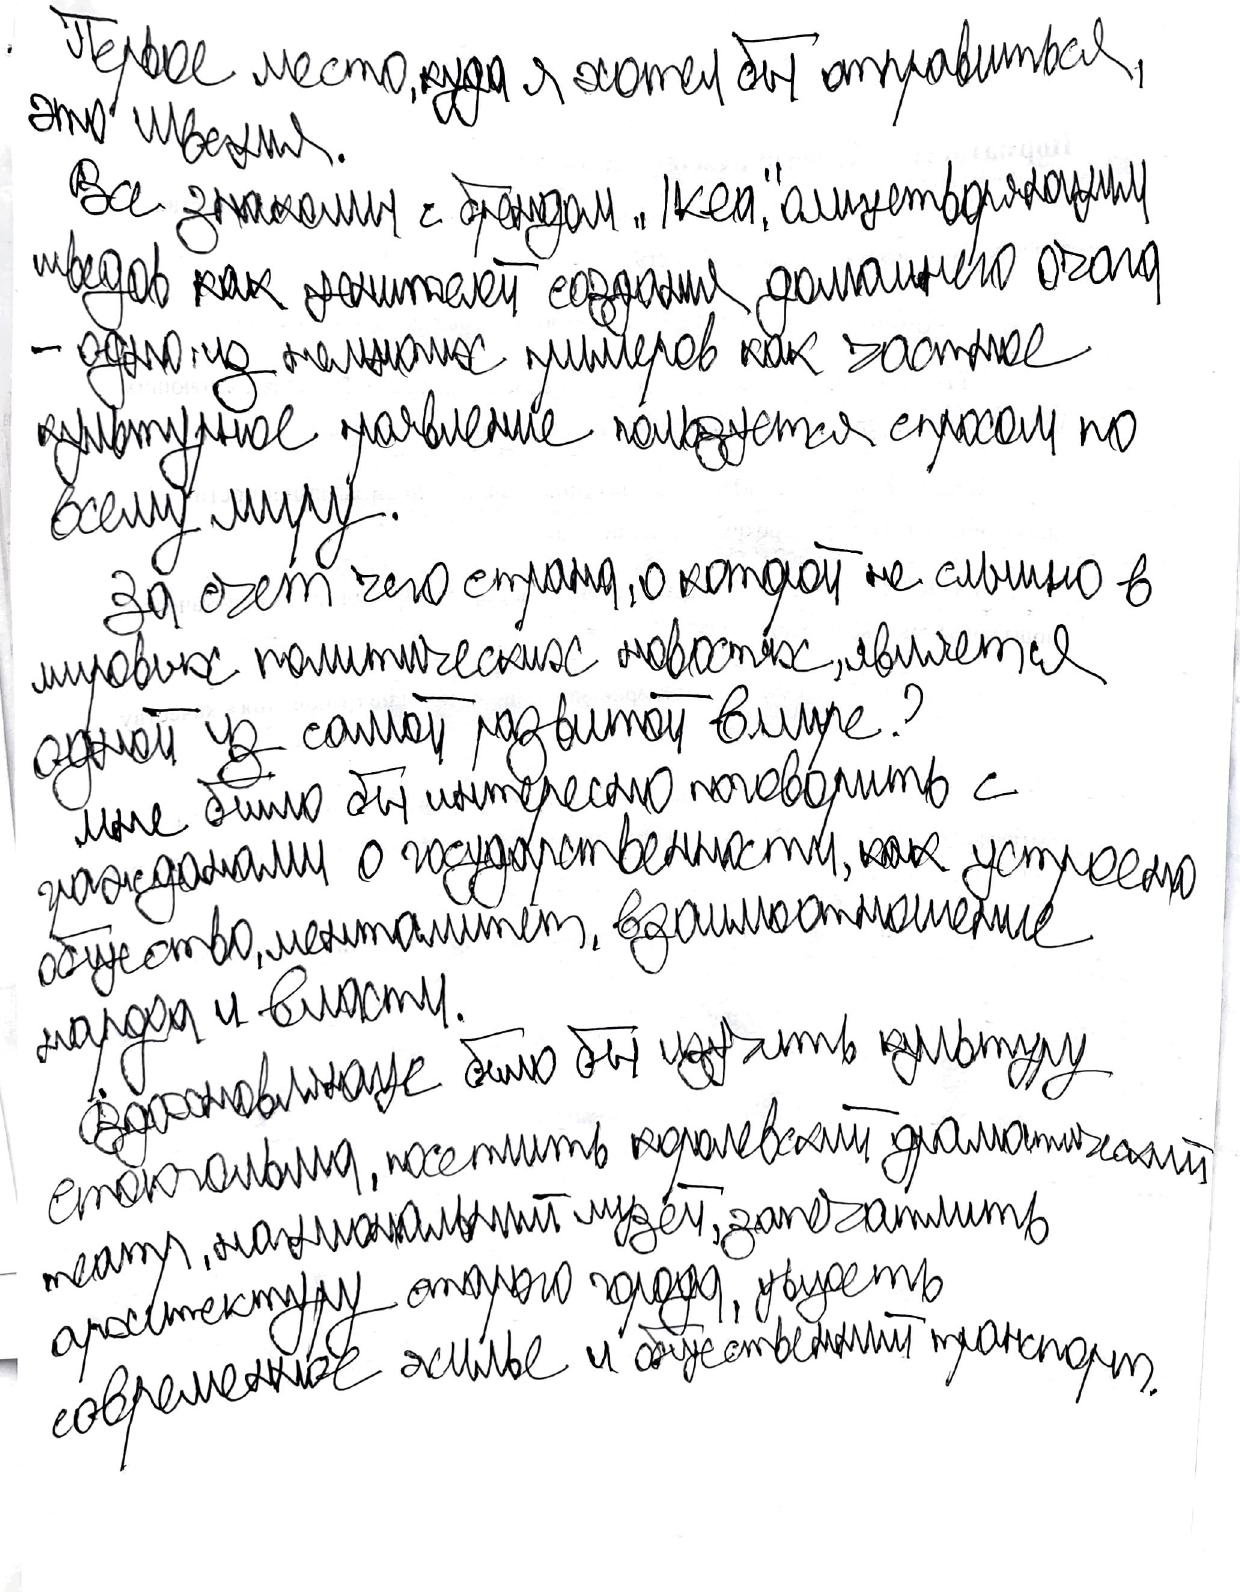 Первое место, куда я хотел бы отправиться,
это Швеция.
Все знакомы с брендом „Ikea", олицетворяющим
шведов как ценителей создания домашнего очага
- одно из немногих примеров как частное
культурное проявление пользуется спросом по
всему миру.
За счет чего страна, о которой не слышно в
мировых политических новостях, является
одной из самой развитой в мире?
мне было бы интересно поговорить с
гражданами о государственности, как устроено
общество, менталитет, взаимоотношение
народа и власти.
Вдохновляюще было бы изучить культуру
стокгольма, посетить королевский драматический
театр, национальный музей, запечатлить
архитектуру старого города, увидеть
современное жилье и общественный транспорт.